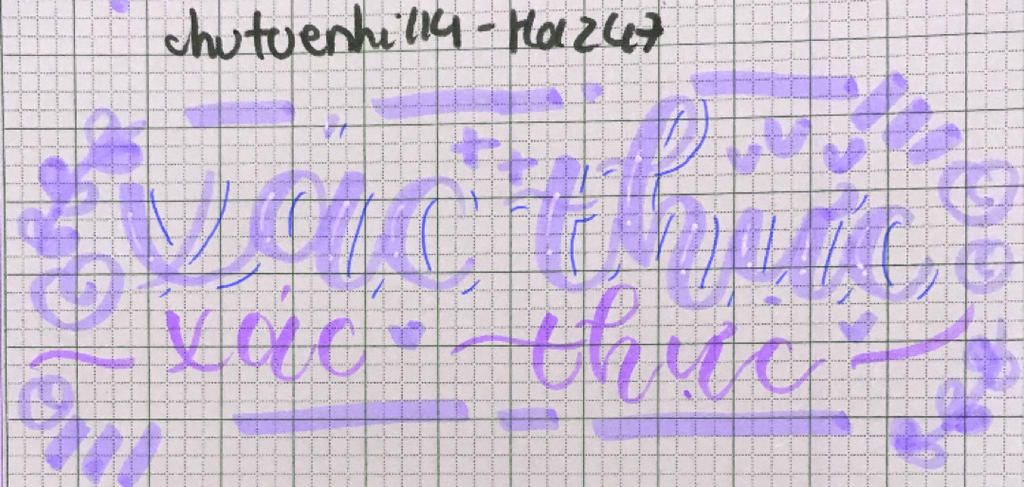 chutuenhi114 - Hoa247
xác thực
xác thực